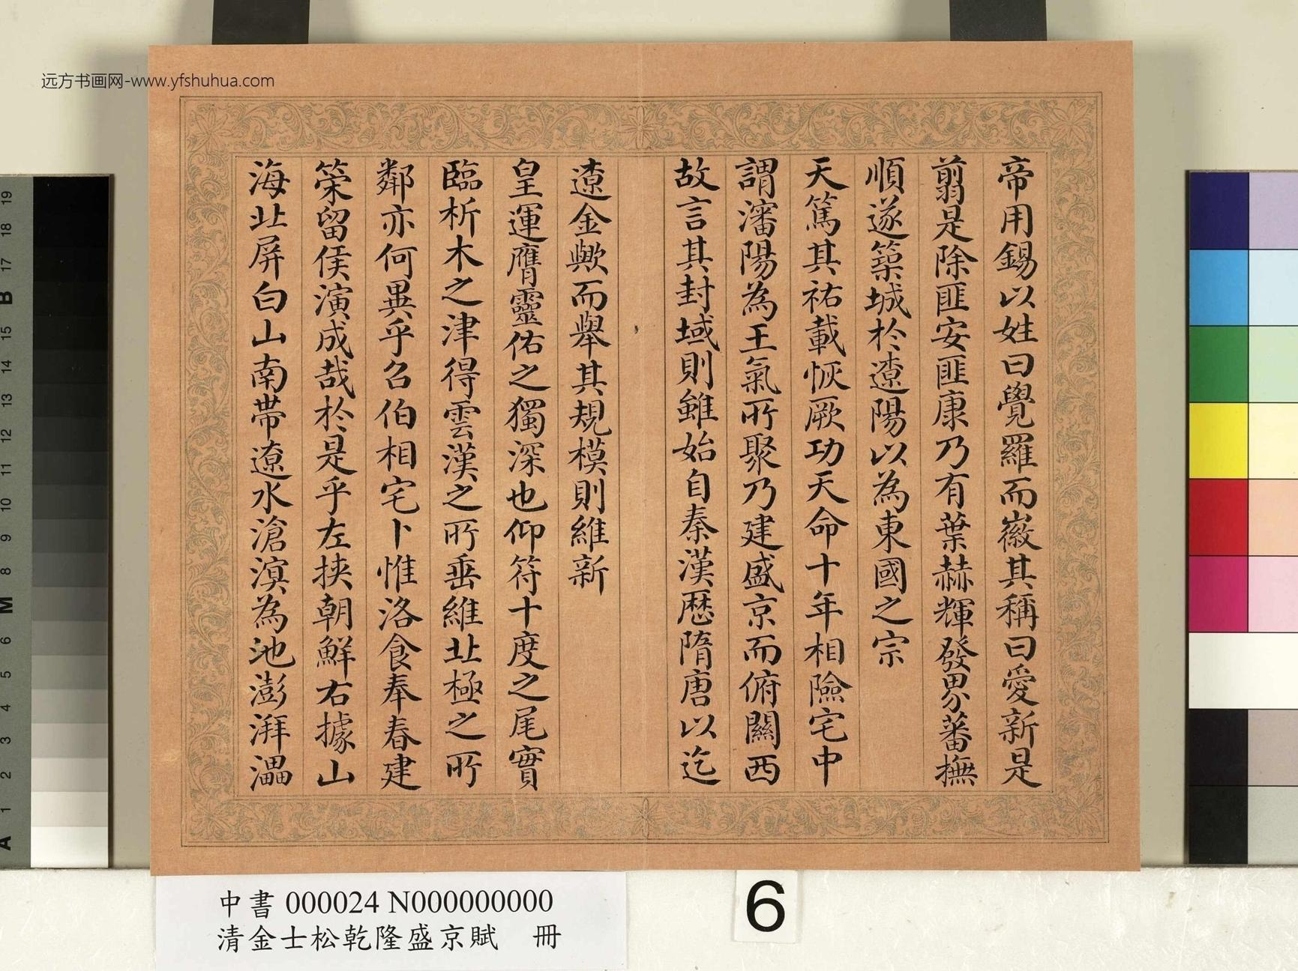 远方书画网-www.yfshuhua.com
帝用錫以姓曰覺羅而徽其稱曰愛新是
翦是除匪安匪康乃有葉赫輝發界蕃撫
順遂築城於遼陽以為東國之宗
天篤其祐載恢厥功天命十年相險宅中
謂瀋陽為王氣所聚乃建盛京而俯關西
故言其封域則雖始自秦漢歷隋唐以迄
遼金歟而舉其規模則維新
皇運膺靈佑之獨深也仰符十度之尾實
臨析木之津得雲漢之所垂維北極之所
鄰亦何異乎召伯相宅卜惟洛食奉春建
策留侯演成哉於是乎左挾朝鮮右據山
海北屏白山南帶遼水滄溟為池澎湃溫
中書 000024 N000000000
清金士松乾隆盛京賦 冊
6
19
18
17
B
15
14
13
12
11
10
9
8
M
6
5
4
3
2
1
A